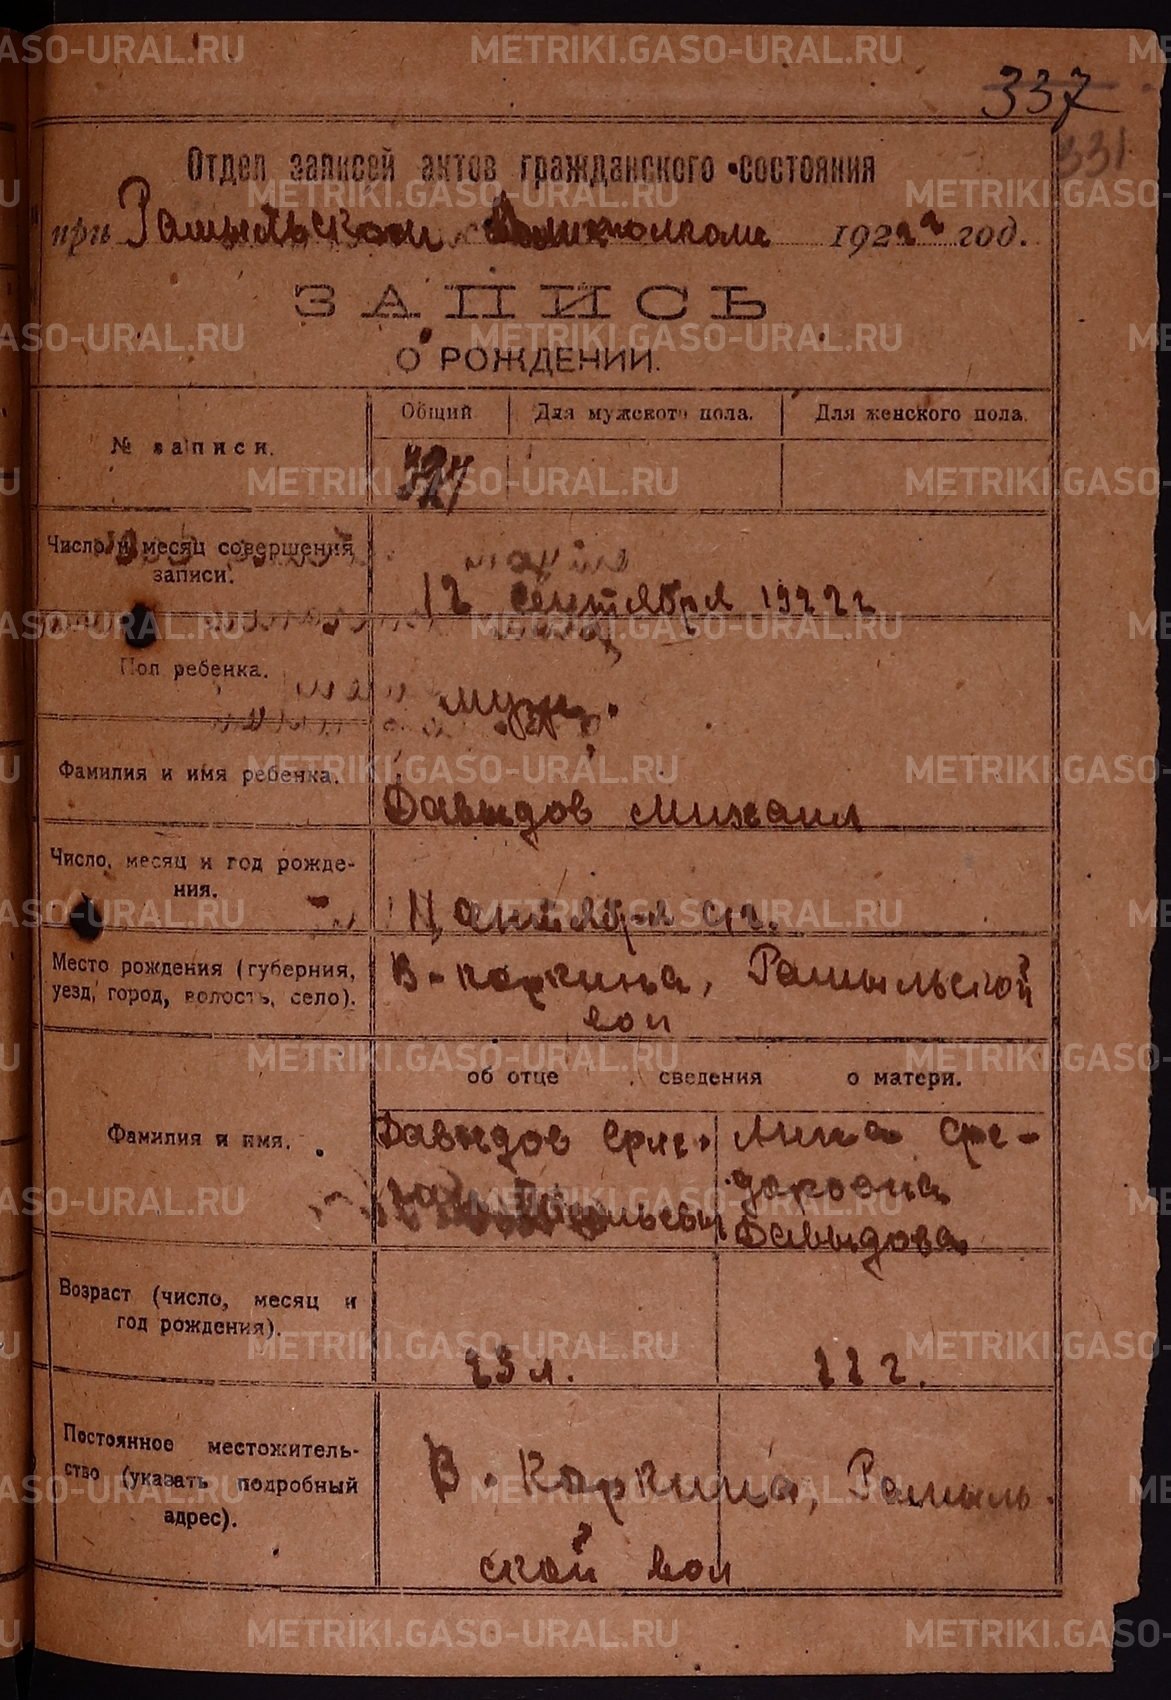 337
331
Отдел записей актов гражданского состояния
при Рамыльском 1922 год.
ЗАПИСЬ
О РОЖДЕНИИ.
№ записи.
Общий
Для мужского пола.
Для женского пола.
327
Число и месяц совершения
записи.
12 сентября 1922 г
Пол ребенка.
муж.
Фамилия и имя ребенка.
Давыдов Михаил
Число, месяц и год рожде-
ния.
11 сентября с.г.
Место рождения (губерния,
уезд, город, волость, село).
В-коркина, Рамыльской
вол
об отце сведения о матери.
Фамилия и имя.
Давыдов
Анна Фе-
доровна
Давыдова
Возраст (число, месяц и
год рождения).
23 л.
22 г.
Постоянное местожитель-
ство (указать подробный
адрес).
В. Коркина, Рамыль-
ской вол
METRIKI.GASO-URAL.RU